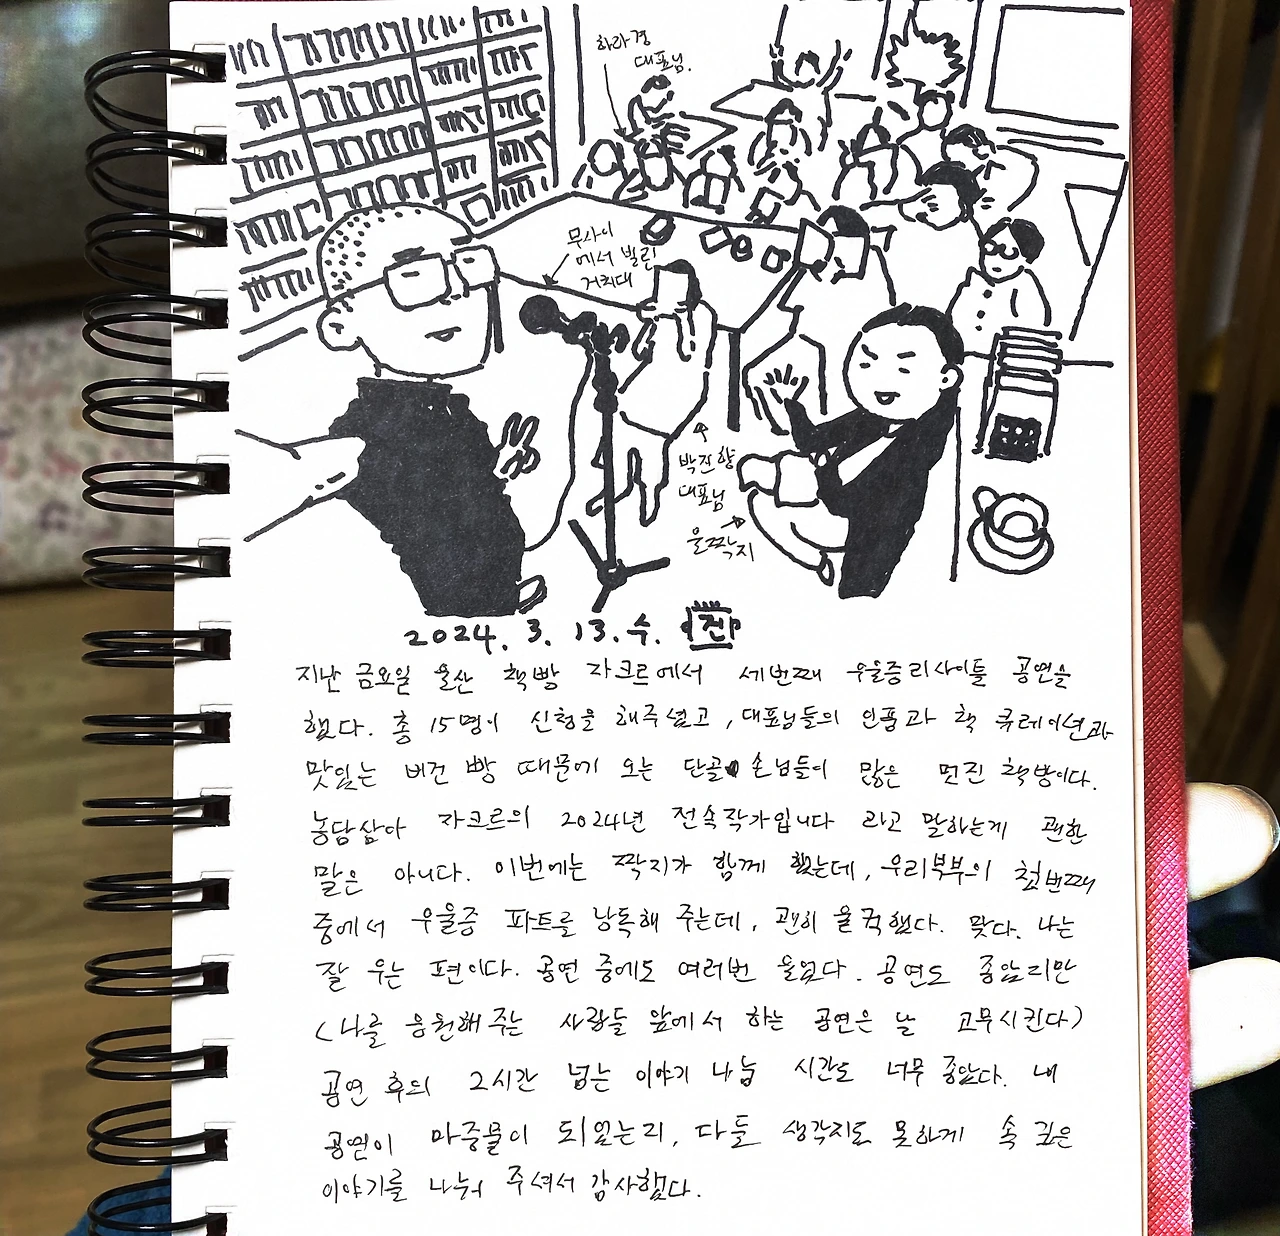 하라경
대표님.
무사이
에서 빌린
거치대
박진향
대표님
울짝지
2024. 3. 13. 수. 전
지난 금요일 울산 책빵 자크르에서 세번째 우울증리사이틀 공연을
했다. 총 15명이 신청을 해주셨고, 대표님들의 인품과 책 큐레이션과
맛있는 비건 빵 때문에 오는 단골 손님들이 많은 멋진 책방이다.
농담삼아 자크르의 2024년 전속작가입니다 라고 말하는게 괜한
말은 아니다. 이번에는 짝지가 함께 했는데, 우리부부의 첫번째
중에서 우울증 파트를 낭독해 주는데, 괜히 울컥했다. 맞다. 나는
잘 우는 편이다. 공연 중에도 여러번 울었다. 공연도 좋았지만
(나를 응원해 주는 사람들 앞에서 하는 공연은 날 고무시킨다)
공연 후의 2시간 넘는 이야기 나눔 시간도 너무 좋았다. 내
공연이 마중물이 되었는지, 다들 생각지도 못하게 속 깊은
이야기를 나눠 주셔서 감사했다.